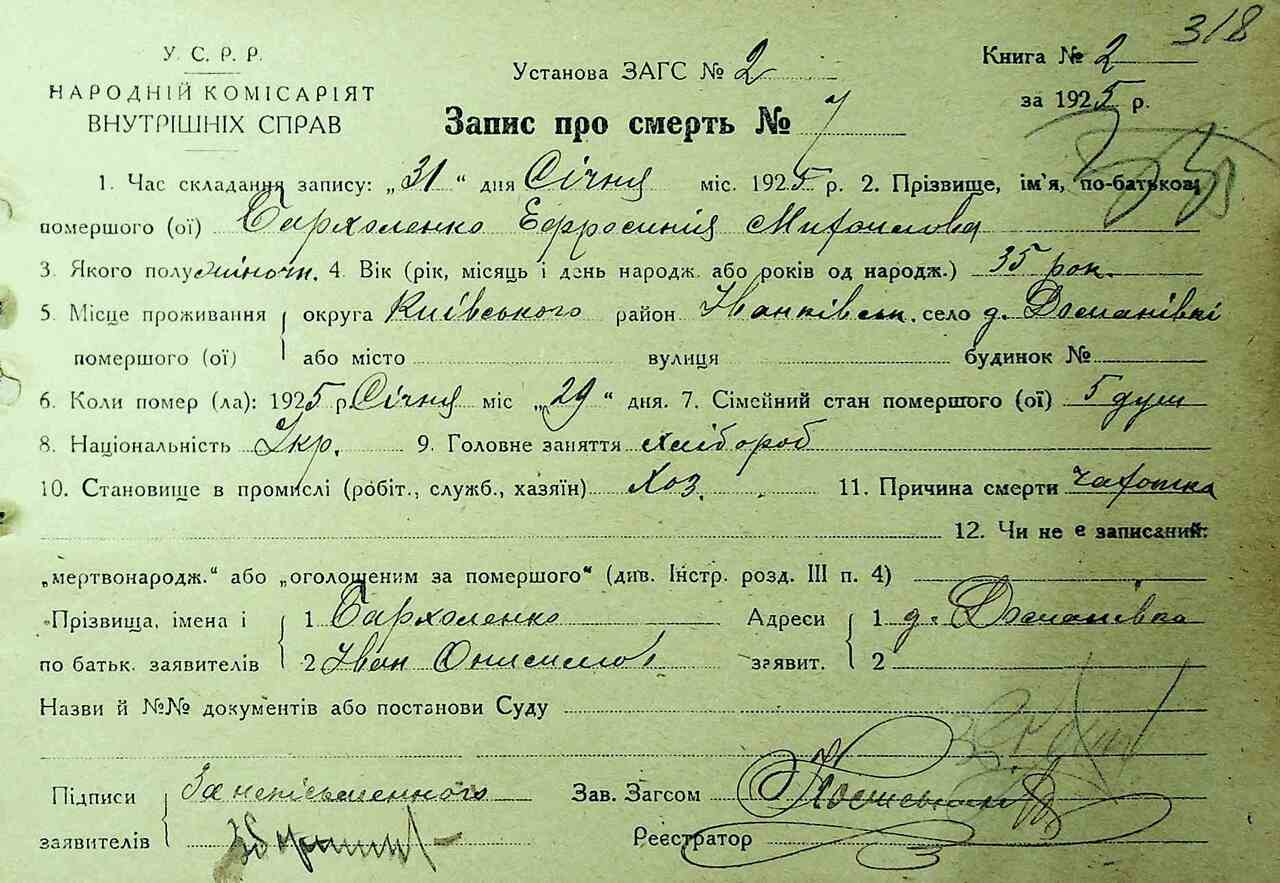 318
У. С. Р. Р.
НАРОДНІЙ КОМІСАРІЯТ
ВНУТРІШНІХ СПРАВ
Установа ЗАГС № 2
Книга № 2
за 1925 р.
Запис про смерть № 7
1. Час складання запису: „31“ дня Січня міс. 1925 р. 2. Прізвище, ім'я, по-батькові
помершого (ої) Бархоленко Ефросинія Михайлова
3. Якого полу жіночи. 4. Вік (рік, місяць і день народж. або років од народж.) 35 рок.
5. Місце проживання округа Київського район Іванківськ. село д. Доманівкі
помершого (ої) або місто вулиця будинок №
6. Коли помер (ла): 1925 р. Січня міс „29“ дня. 7. Сімейний стан помершого (ої) 5 душ
8. Національність Укр. 9. Головне заняття хлібороб
10. Становище в промислі (робіт., служб., хазяїн) Хоз. 11. Причина смерти чахотка
12. Чи не є записаний:
„мертвонародж.“ або „оголошеним за помершого“ (див. Інстр. розд. III п. 4)
Прізвища, імена і 1 Бархоленко Адреси 1 д. Доманівка
по батьк. заявителів 2 Іван заявит. 2
Назви й №№ документів або постанови Суду
Підписи За неписьменного Зав. Загсом
заявителів Реєстратор